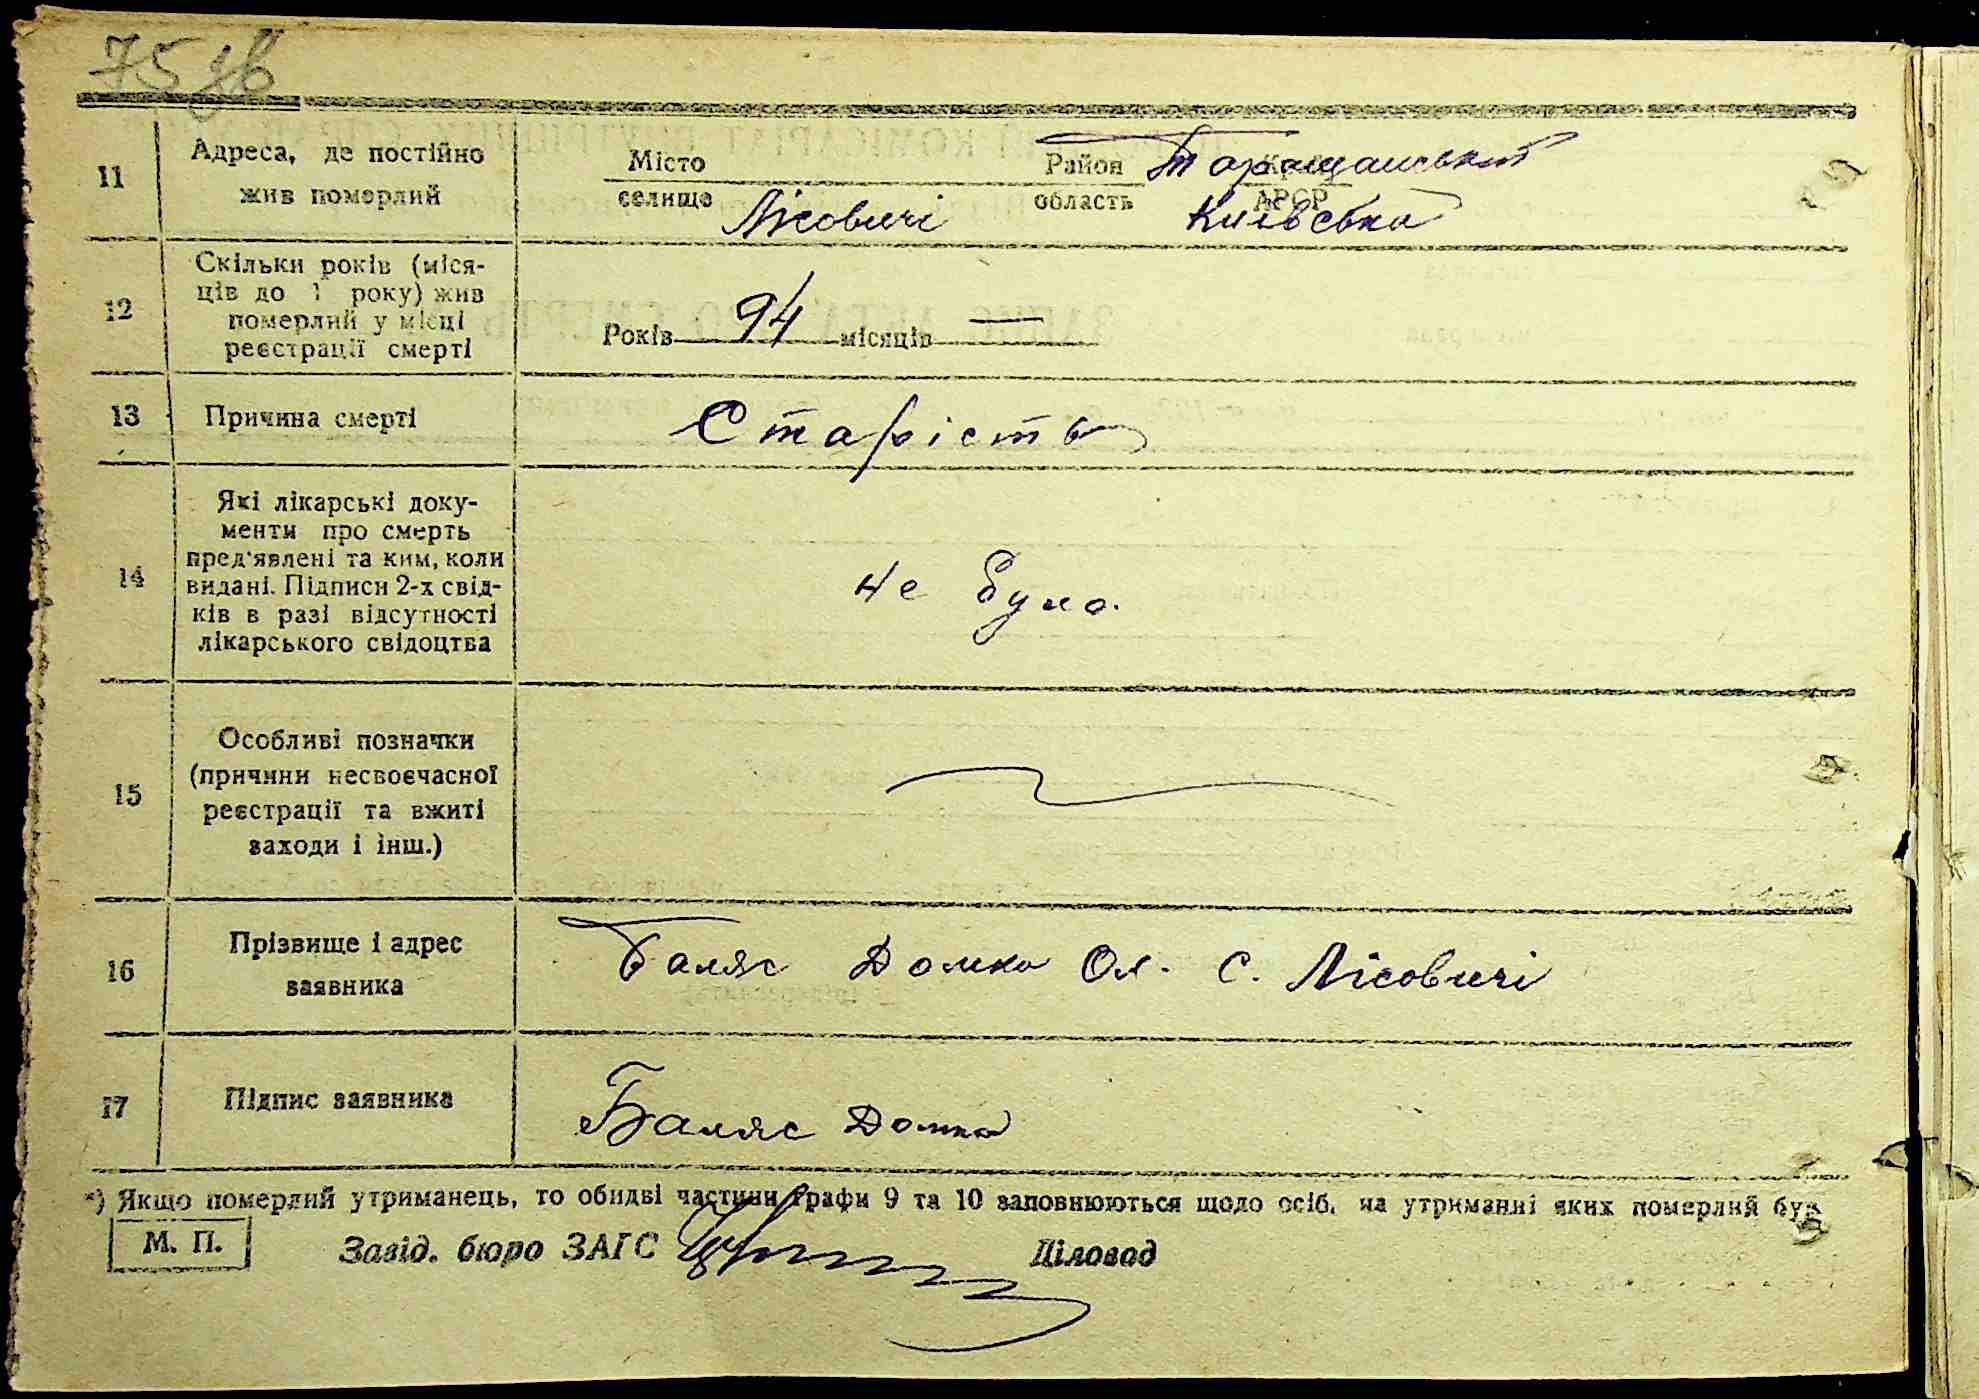 75 зв
11
Адреса, де постійно
жив померлий
Місто
селище
Лісовичі
Район
область
Таращанський
Край
АРСР
Київська
12
Скільки років (міся-
ців до 1 року) жив
померлий у місці
реєстрації смерті
Років 94 місяців —
13
Причина смерті
Старість
14
Які лікарські доку-
менти про смерть
пред'явлені та ким, коли
видані. Підписи 2-х свід-
ків в разі відсутності
лікарського свідоцтва
не було.
15
Особливі позначки
(причини несвоєчасної
реєстрації та вжиті
заходи і інш.)
16
Прізвище і адрес
заявника
Баляс Домка Ол. с. Лісовичі
17
Підпис заявника
Баляс Домка
*) Якщо померлий утриманець, то обидві частини графи 9 та 10 заповнюються щодо осіб, на утриманні яких померлий був
М. П.
Завід. бюро ЗАГС
Діловод